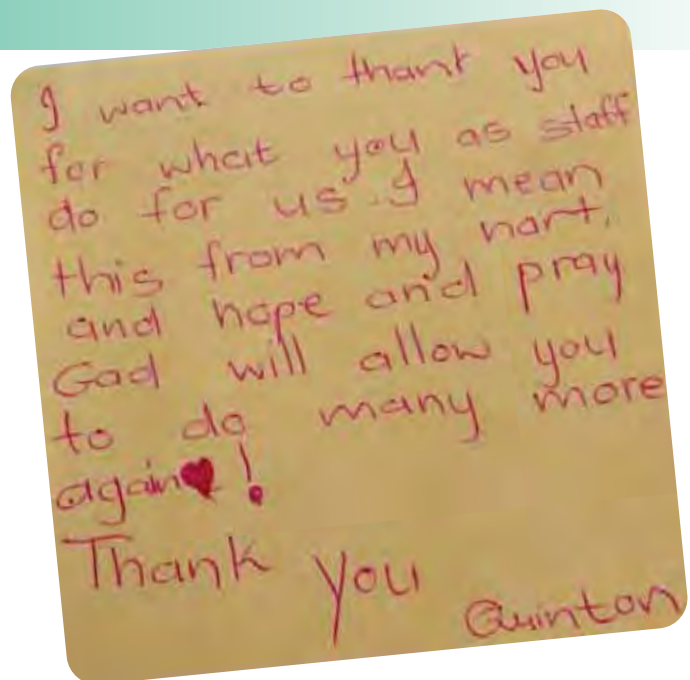 I want to thank you
for what you as staff
do for us. I mean
this from my hart,
and hope and pray
God will allow you
to do many more
again♥!
Thank you
Quinton